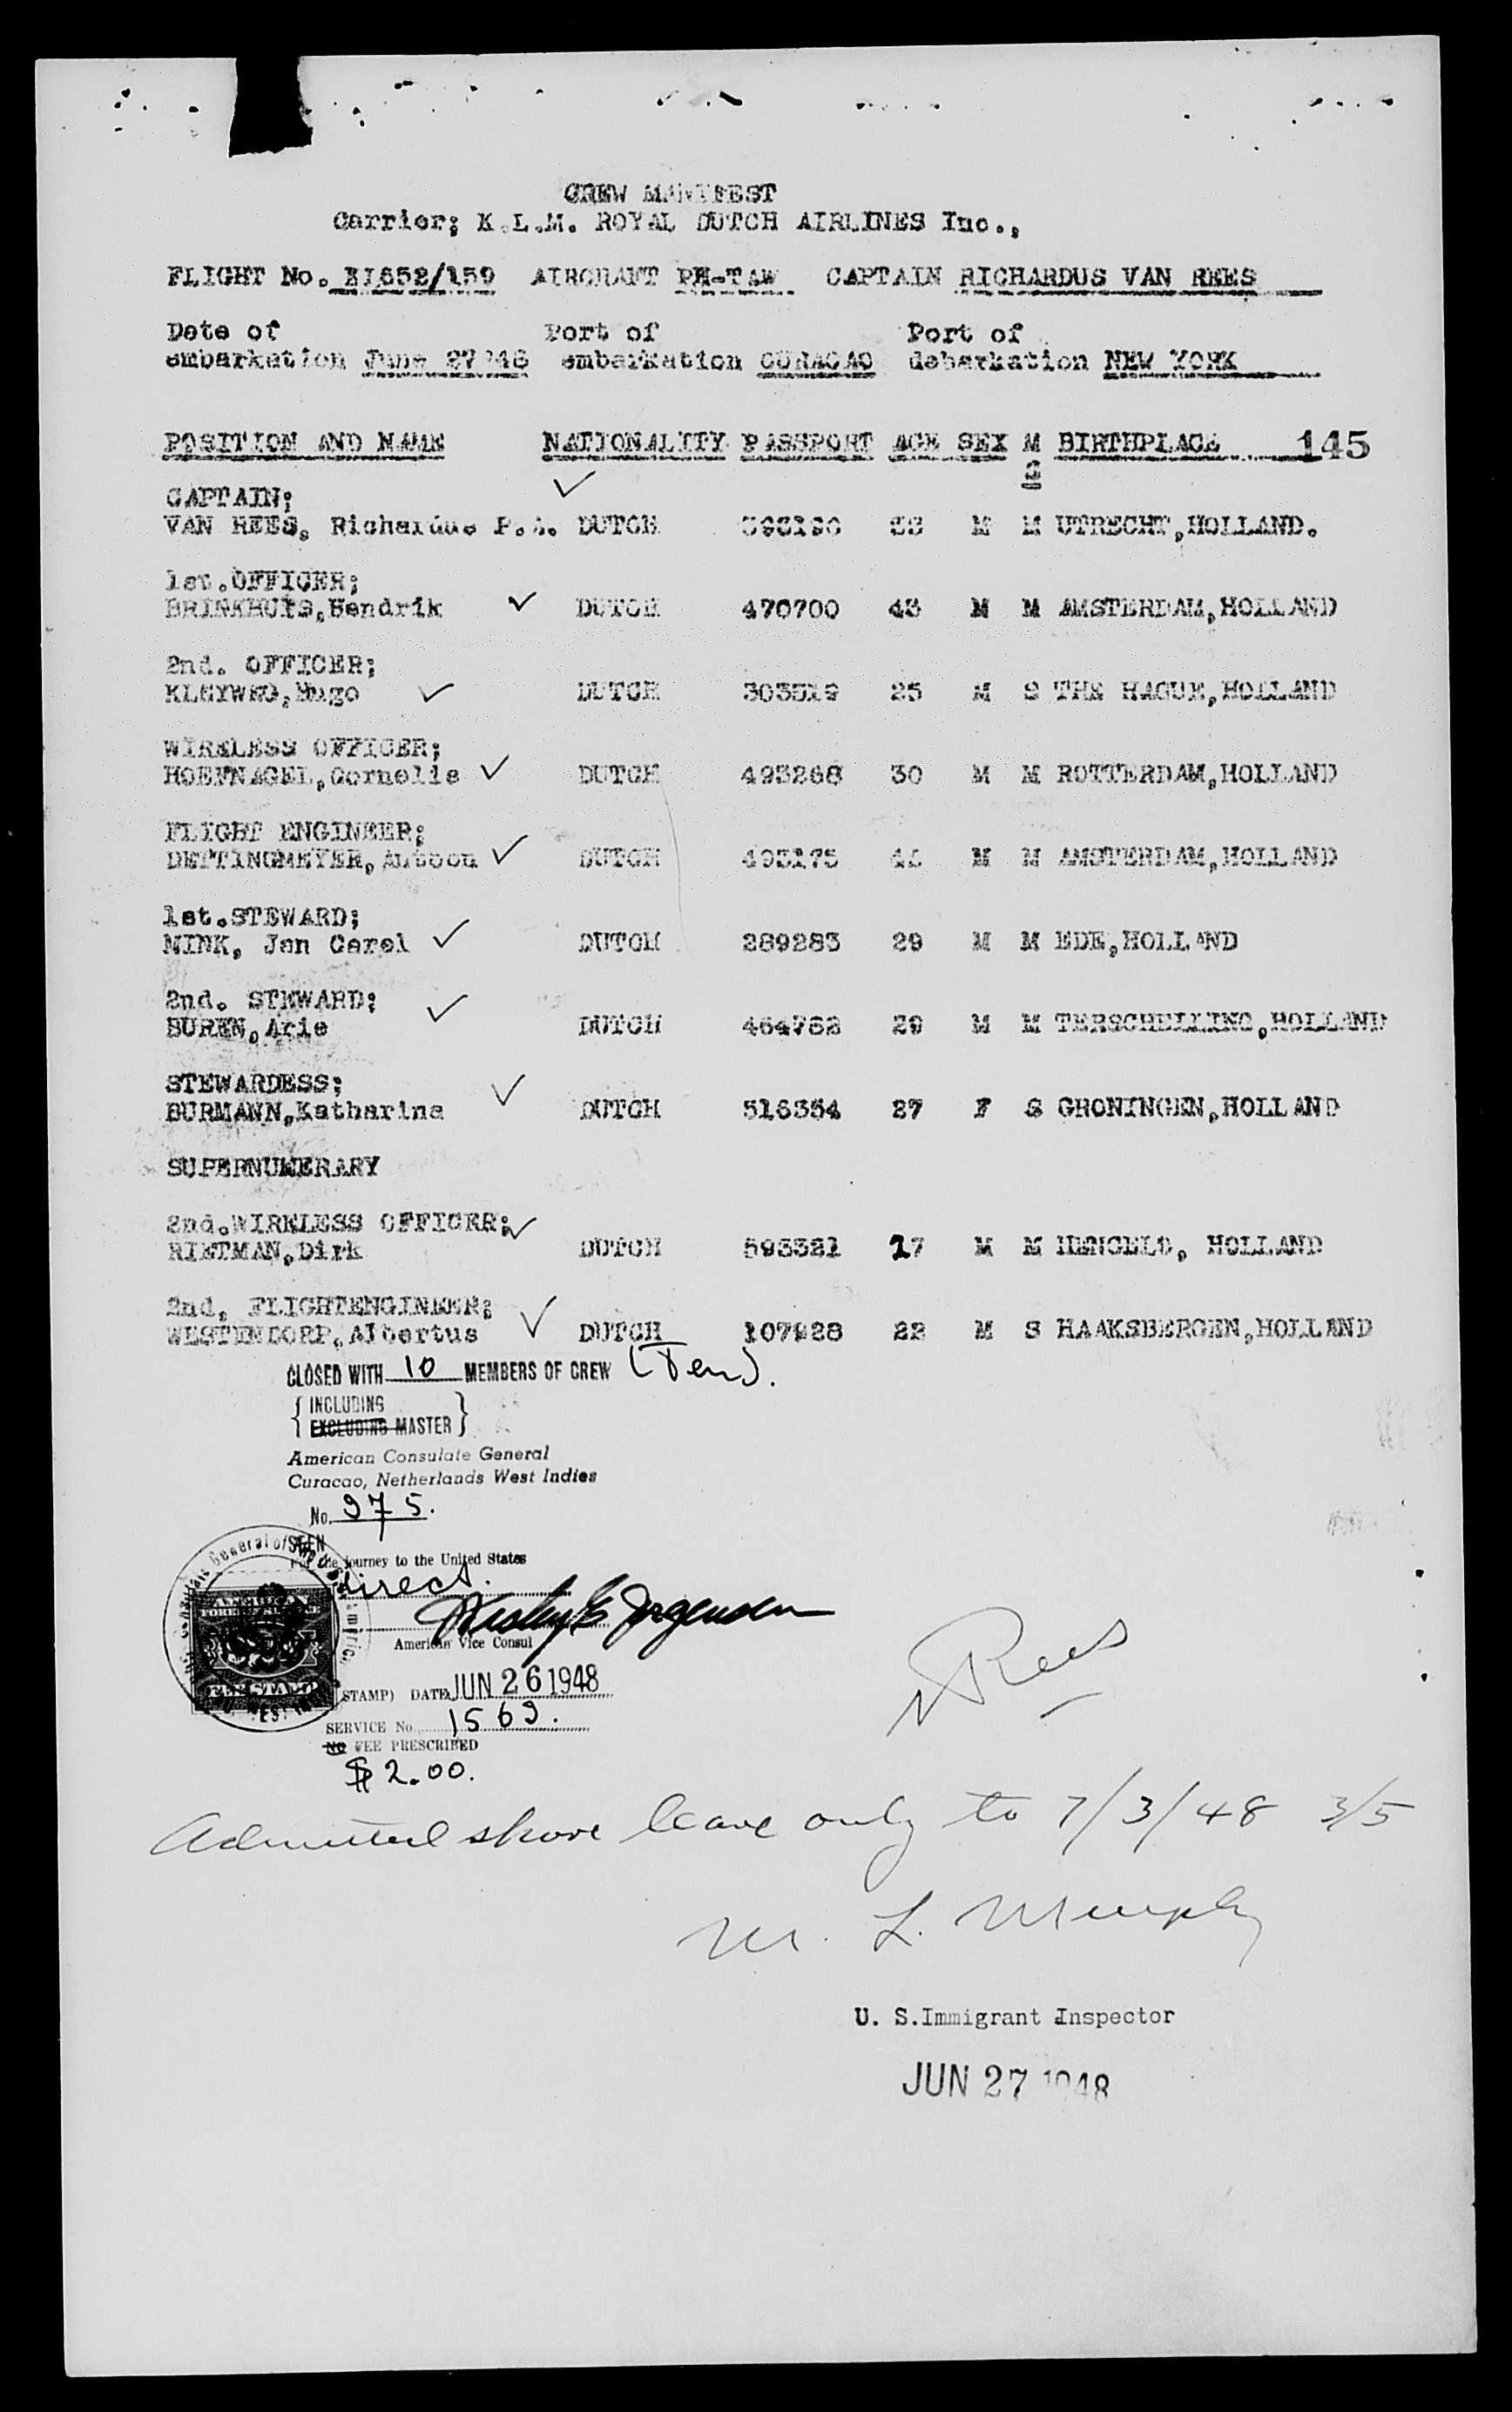 CREW MANIFEST
Carrier; K.L.M. ROYAL DUTCH AIRLINES Inc.,
FLIGHT No. /159 AIRCRAFT PH-TAW CAPTAIN RICHARDUS VAN REES
Date of Port of Port of
embarkation June 27 '48 embarkation CURACAO debarkation NEW YORK
POSITION AND NAME NATIONALITY PASSPORT AGE SEX M BIRTHPLACE 145
S
CAPTAIN;
VAN REES, Richardus P.A. DUTCH M M UTRECHT,HOLLAND.
1st.OFFICER;
BRINKHUIS,Hendrik DUTCH 470700 43 M M AMSTERDAM,HOLLAND
2nd. OFFICER;
KLEYWEG,Hugo DUTCH 25 M S THE HAGUE,HOLLAND
WIRELESS OFFICER;
HOEFNAGEL,Cornelis DUTCH 493268 30 M M ROTTERDAM,HOLLAND
FLIGHT ENGINEER;
DETTINGMEYER,Antoon DUTCH 493175 M M AMSTERDAM,HOLLAND
1st.STEWARD;
NINK, Jan Carel DUTCH 289283 29 M M EDE,HOLLAND
2nd. STEWARD;
BUREN,Arie DUTCH 29 M M TERSCHELLING,HOLLAND
STEWARDESS;
BURMANN,Katharina DUTCH 516354 27 F S GRONINGEN,HOLLAND
SUPERNUMERARY
2nd.WIRELESS OFFICER;
RIETMAN,Dirk DUTCH 593321 27 M M HENGELO, HOLLAND
2nd, FLIGHTENGINEER;
WESTENDORP,Albertus DUTCH 107928 22 M S HAAKSBERGEN,HOLLAND
CLOSED WITH 10 MEMBERS OF CREW (Ten).
INCLUDING
EXCLUDING MASTER
American Consulate General
Curacao, Netherlands West Indies
No. 975.
SEEN
For the journey to the United States
direct.
American Vice Consul
STAMP) DATE JUN 26 1948
SERVICE No. 1569.
NO FEE PRESCRIBED
$2.00.
Rees
Admitted shore leave only to 7/3/48 3/5
M. L. Murphy
U. S.Immigrant Inspector
JUN 27 1948